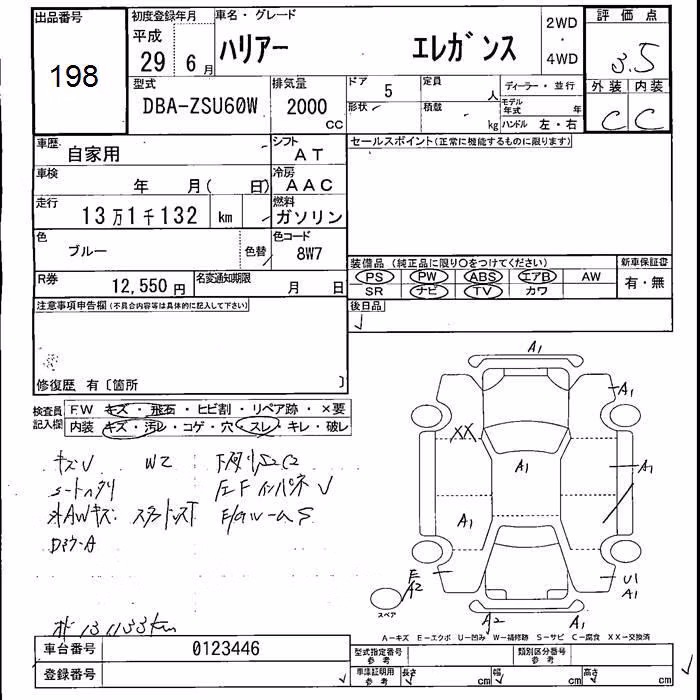 出品番号 初度登録年月 車名・グレード 2WD ・ 4WD 評価点
198 平成 29 6月 ハリアー エレガンス 3.5
外装 内装
C C
型式 DBA-ZSU60W 排気量 2000 CC
ドア 5 定員 人 ディーラー・並行
形状 積載 kg モデル年式 年
ハンドル 左・右
車歴 自家用 シフト AT
セールスポイント(正常に機能するものに限ります)
車検 年 月( 日) 冷房 AAC
走行 13万1千132 km 燃料 ガソリン
色 ブルー 色替 色コード 8W7
装備品(純正品に限り○をつけてください) 新車保証書
PS PW ABS エアB AW 有・無
SR ナビ TV カワ
R券 12,550円 名変通知期限 月 日
注意事項申告欄(不具合内容等は具体的に記入して下さい)
後日品
修復歴 有〔箇所 〕
検査員記入欄 F.W キズ・飛石・ヒビ割・リペア跡・×要
内装 キズ・汚レ・コゲ・穴・スレ・キレ・破レ
キズU
シートヘタリ
A1
A1
XX
A1
A1
A1
E A2
U1 A1
スペア
A2 A1
A-キズ E-エクボ U-凹み W-補修跡 S-サビ C-腐食 XX-交換済
車台番号 0123446
型式指定番号 参考 類別区分番号 参考
登録番号
車庫証明用 参考 長さ cm 幅 cm 高さ cm